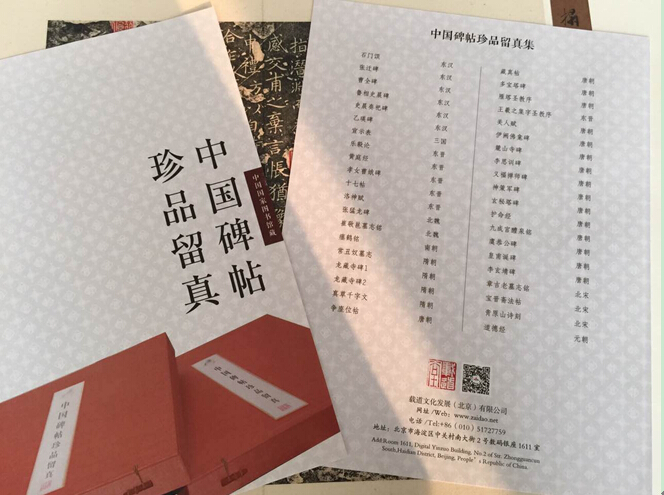 中国碑帖
珍品留真
中国国家图书馆藏
中国碑帖珍品留真
中国碑帖珍品留真
感交甫之棄言悵猶
中国碑帖珍品留真集
石门颂 东汉
张迁碑 东汉
曹全碑 东汉
鲁相史晨碑 东汉
史晨飨祀碑 东汉
乙瑛碑 东汉
宣示表 三国
乐毅论 东晋
黄庭经 东晋
孝女曹娥碑 东晋
十七帖 东晋
洛神赋 东晋
张猛龙碑 北魏
崔敬邕墓志铭 北魏
瘗鹤铭 南朝
常丑奴墓志 隋朝
龙藏寺碑1 隋朝
龙藏寺碑2 隋朝
真草千字文 隋朝
争座位帖 唐朝
藏真帖 唐朝
多宝塔碑 唐朝
雁塔圣教序 唐朝
王羲之集字圣教序 东晋
美人赋 唐朝
伊阙佛龛碑 唐朝
麓山寺碑 唐朝
李思训碑 唐朝
义福禅师碑 唐朝
神策军碑 唐朝
玄秘塔碑 唐朝
护命经 唐朝
九成宫醴泉铭 唐朝
虞恭公碑 唐朝
皇甫诞碑 唐朝
李玄靖碑 唐朝
章吉老墓志铭 北宋
宝晋斋法帖 北宋
青原山诗刻 北宋
道德经 元朝
载道文化发展（北京）有限公司
网址/Web: www.zaidao.net
电话/Tel:+86（010）51727759
地址: 北京市海淀区中关村南大街2号数码银座1611室
Add:Room 1611, Digital Yinzuo Building, No.2 of Str. Zhongguancun
South,Haidian District, Beijing, People's Republic of China.